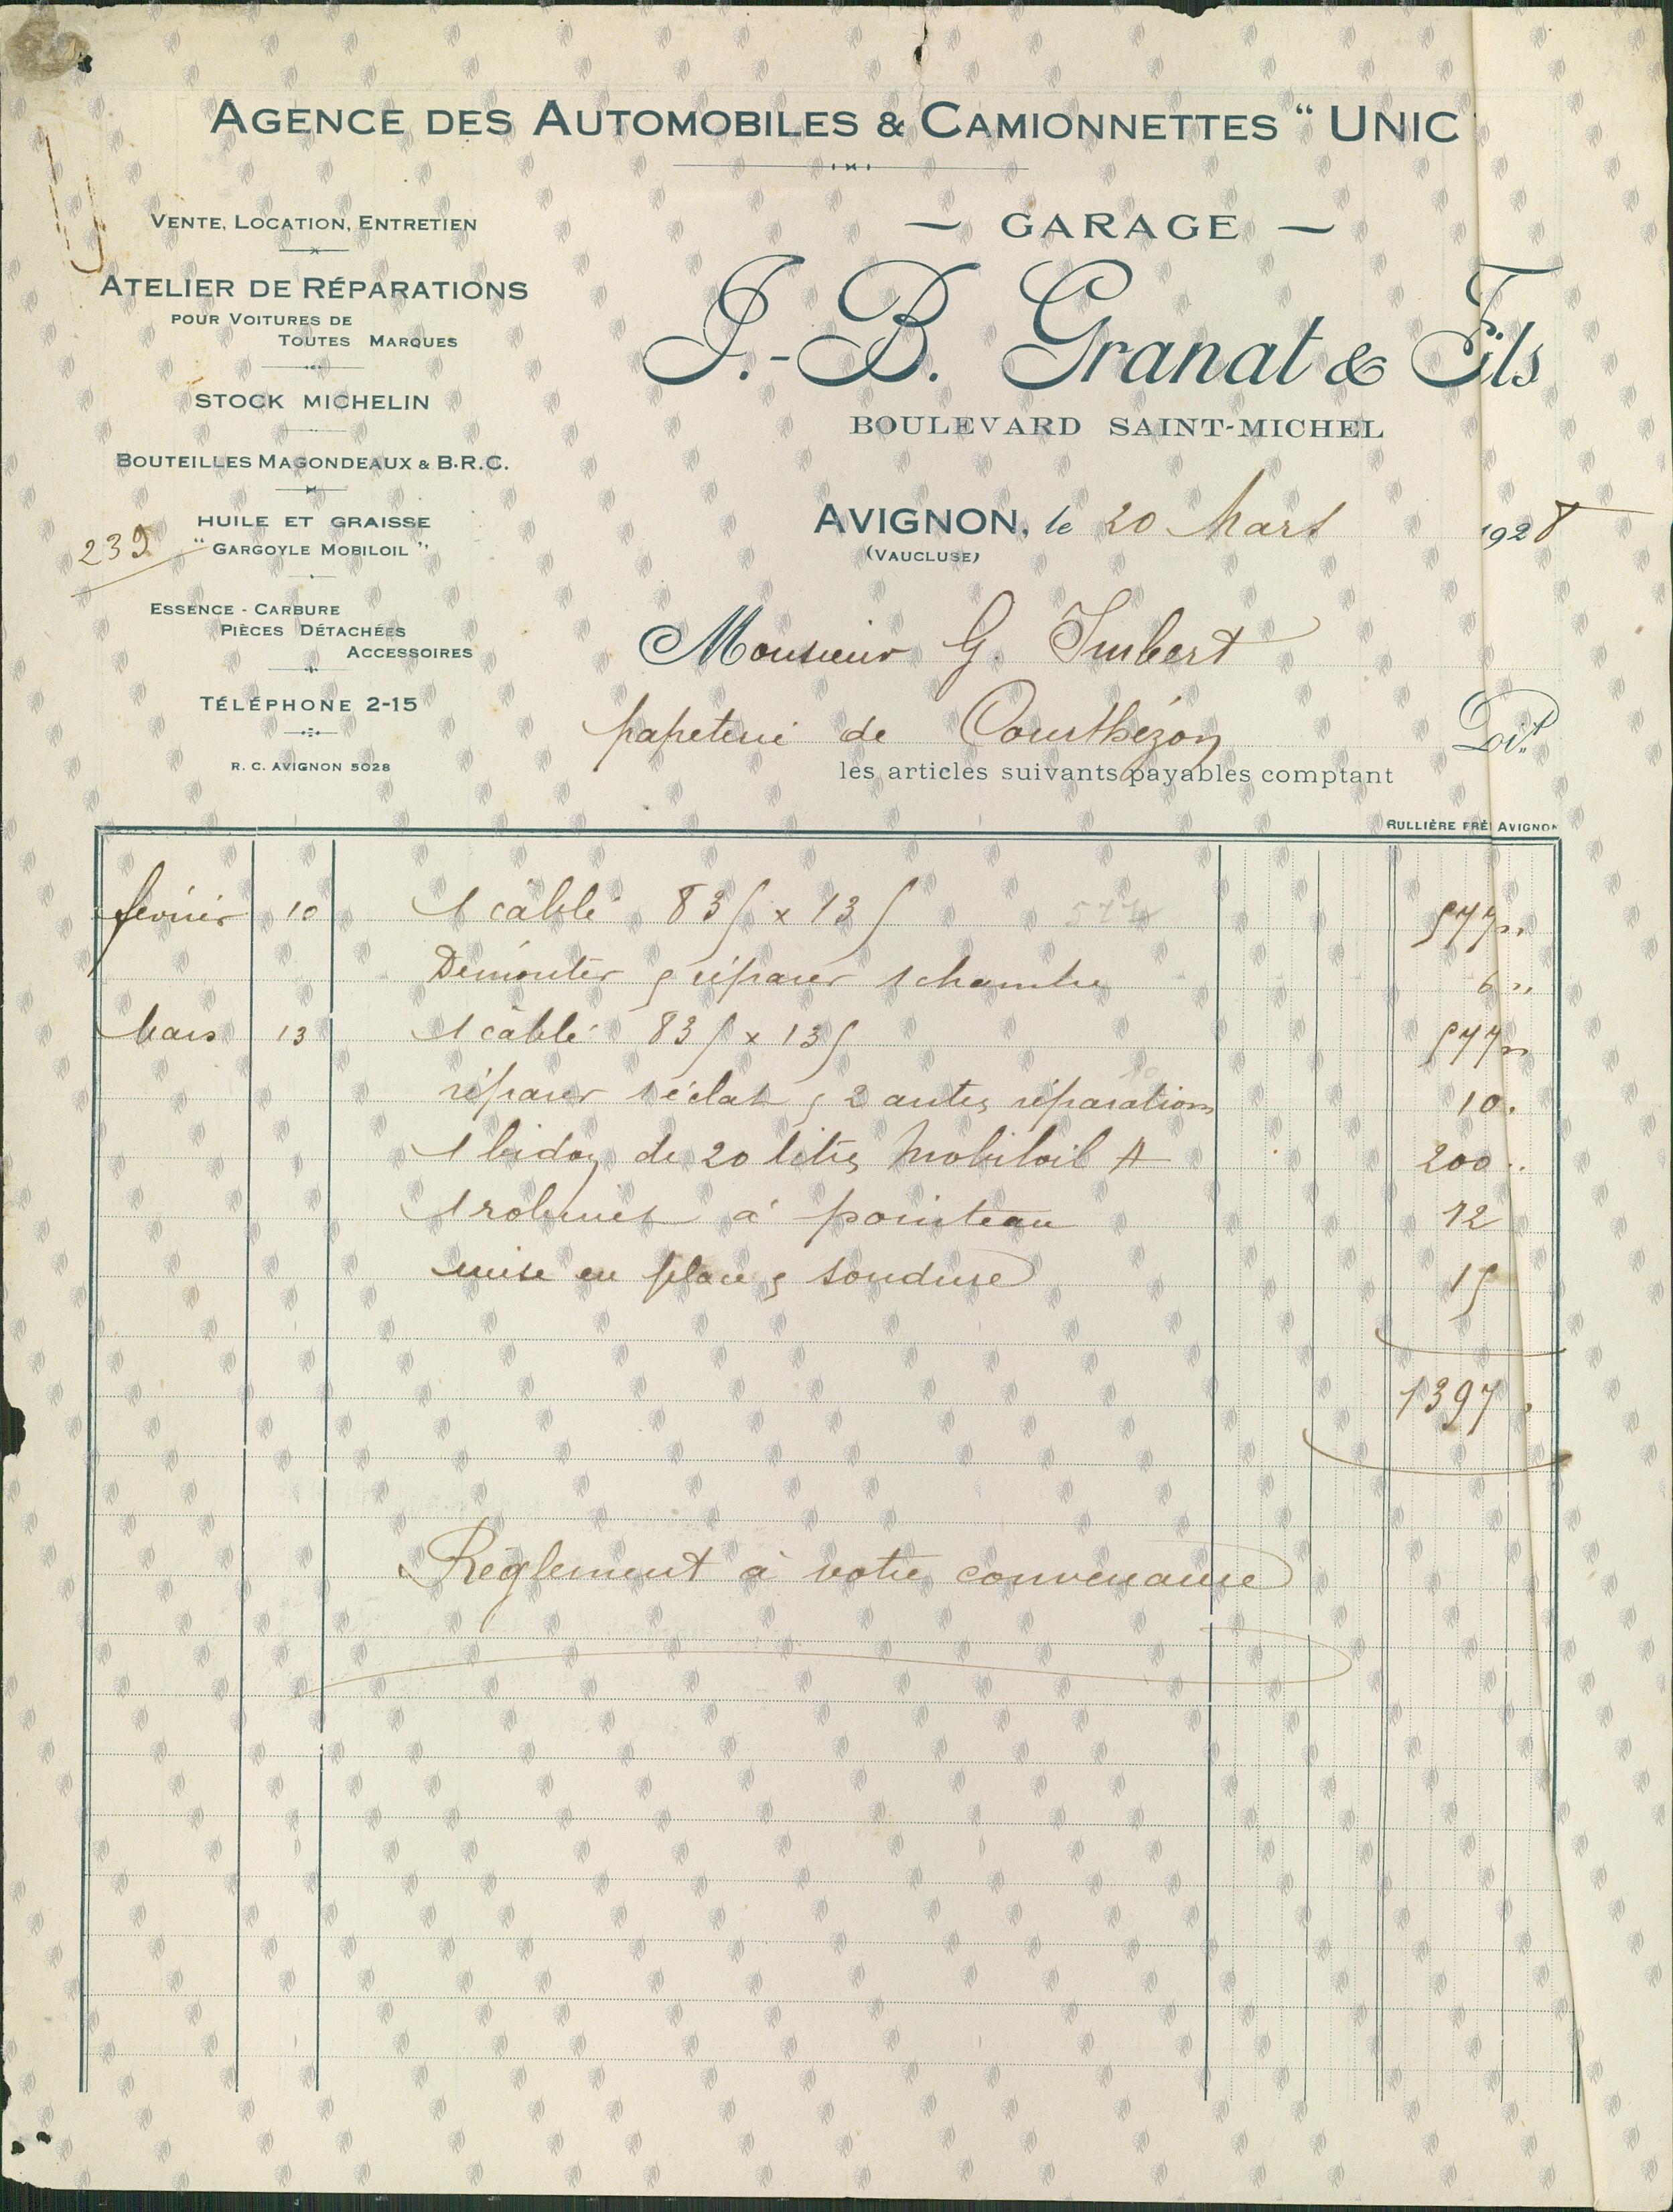 AGENCE DES AUTOMOBILES & CAMIONNETTES “ UNIC
VENTE, LOCATION, ENTRETIEN
ATELIER DE RÉPARATIONS
POUR VOITURES DE
TOUTES MARQUES
STOCK MICHELIN
BOUTEILLES MAGONDEAUX & B.R.C.
HUILE ET GRAISSE
“ GARGOYLE MOBILOIL ”
239
ESSENCE - CARBURE
PIÈCES DÉTACHÉES
ACCESSOIRES
TÉLÉPHONE 2-15
R. C. AVIGNON 5028
— GARAGE —
J.-B. Granat & Fils
BOULEVARD SAINT-MICHEL
AVIGNON, le 20 Mars 1928
(VAUCLUSE)
Monsieur G. Imbert
papeterie de Courthézon Doit
les articles suivants payables comptant
RULLIÈRE FRÈ AVIGNON
février 10 1 câblé 835 x 135 577 577 "
Démonter & réparer 1 chambre 6 "
Mars 13 1 câblé 835 x 135 577 "
10
réparer 1 éclat & 2 autres réparations 10.
1 bidon de 20 litres Mobiloil A 200 ..
1 robinet à pointeau 12
mise en place & soudure 15
1397 .
Règlement à votre convenance